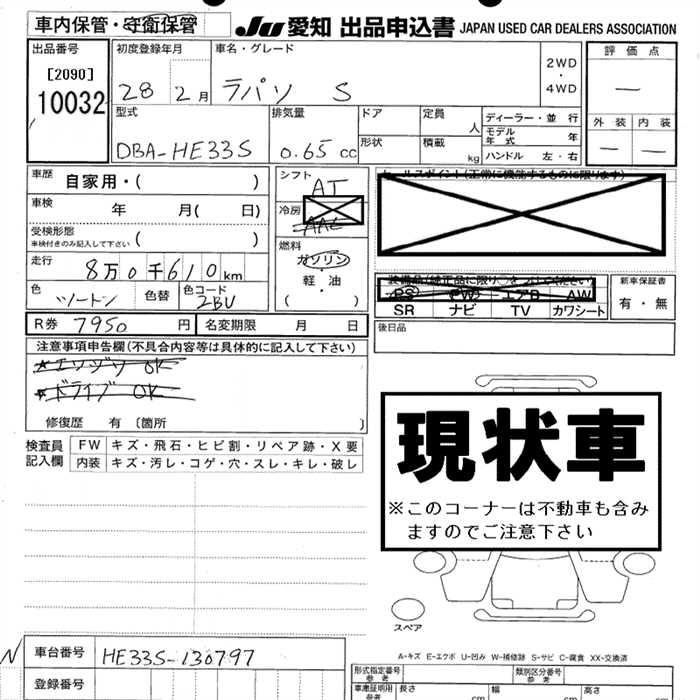 車内保管・守衛保管
JU 愛知 出品申込書 JAPAN USED CAR DEALERS ASSOCIATION
出品番号
[2090]
10032
初度登録年月
28 2月
車名・グレード
ラパン S
2WD
・
4WD
評価点
—
外装 内装
— —
型式
DBA-HE33S
排気量
0.65 cc
ドア
形状
定員 人
積載 kg
ディーラー・並行
モデル年式 年
ハンドル 左・右
車歴 自家用・( )
車検 年 月( 日)
受検形態
車検付きのみ記入して下さい ( )
走行 8万0千610km
色 ツートン 色替 色コード ZBU
シフト AT
冷房 AAC
燃料
ガソリン
・
軽・油
( )
セールスポイント(正常に機能するものに限ります)
装備品(純正品に限り○をつけてください)
PS PW エアB AW
SR ナビ TV カワシート
新車保証書
有・無
R券 7950 円 名変期限 月 日
後日品
注意事項申告欄(不具合内容等は具体的に記入して下さい)
★エンジン OK
★ドライブ OK
修復歴 有 〔箇所 〕
検査員記入欄
FW キズ・飛石・ヒビ割・リペア跡・X要
内装 キズ・汚レ・コゲ・穴・スレ・キレ・破レ
現状車
※このコーナーは不動車も含み
ますのでご注意下さい
スペア
A-キズ E-エクボ U-凹み W-補修跡 S-サビ C-腐食 XX-交換済
N
車台番号 HE33S-130797
登録番号
形式指定番号
参考
類別区分番号
参考
車庫証明用
参考
長さ cm
幅 cm
高さ cm